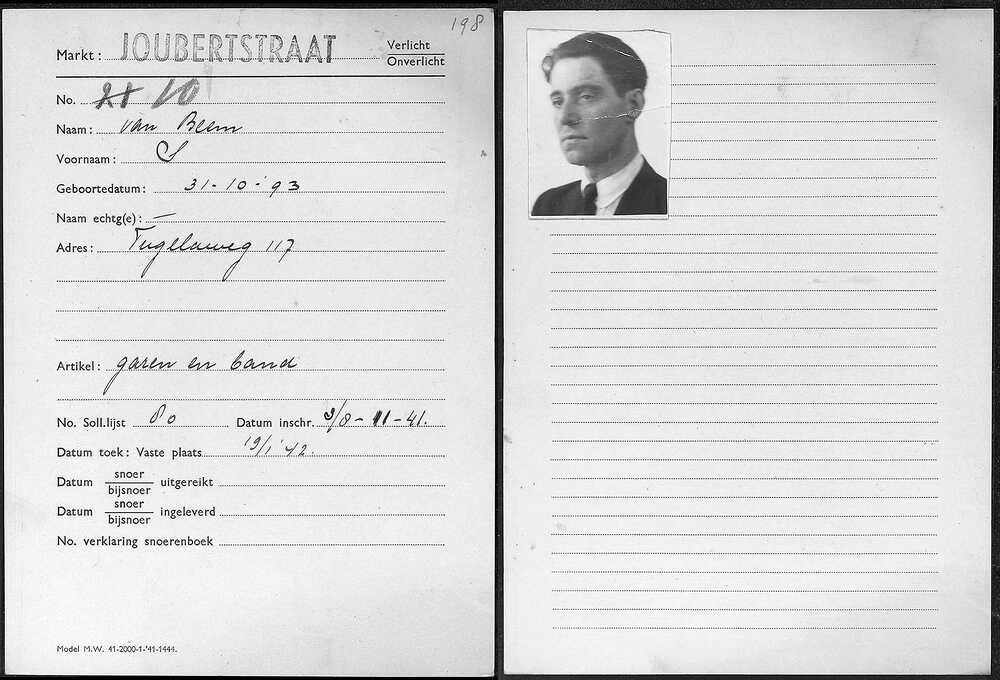 198
Markt: JOUBERTSTRAAT Verlicht
Onverlicht
No. 21 10
Naam: van Beem
Voornaam: S
Geboortedatum: 31-10-'93
Naam echtg(e): —
Adres: Tugelaweg 117
Artikel: garen en band
No. Soll.lijst 80 Datum inschr. 3/8-11-41.
Datum toek: Vaste plaats 19/1 '42.
Datum snoer uitgereikt
bijsnoer
Datum snoer ingeleverd
bijsnoer
No. verklaring snoerenboek
Model M.W. 41-2000-1-'41-1444.